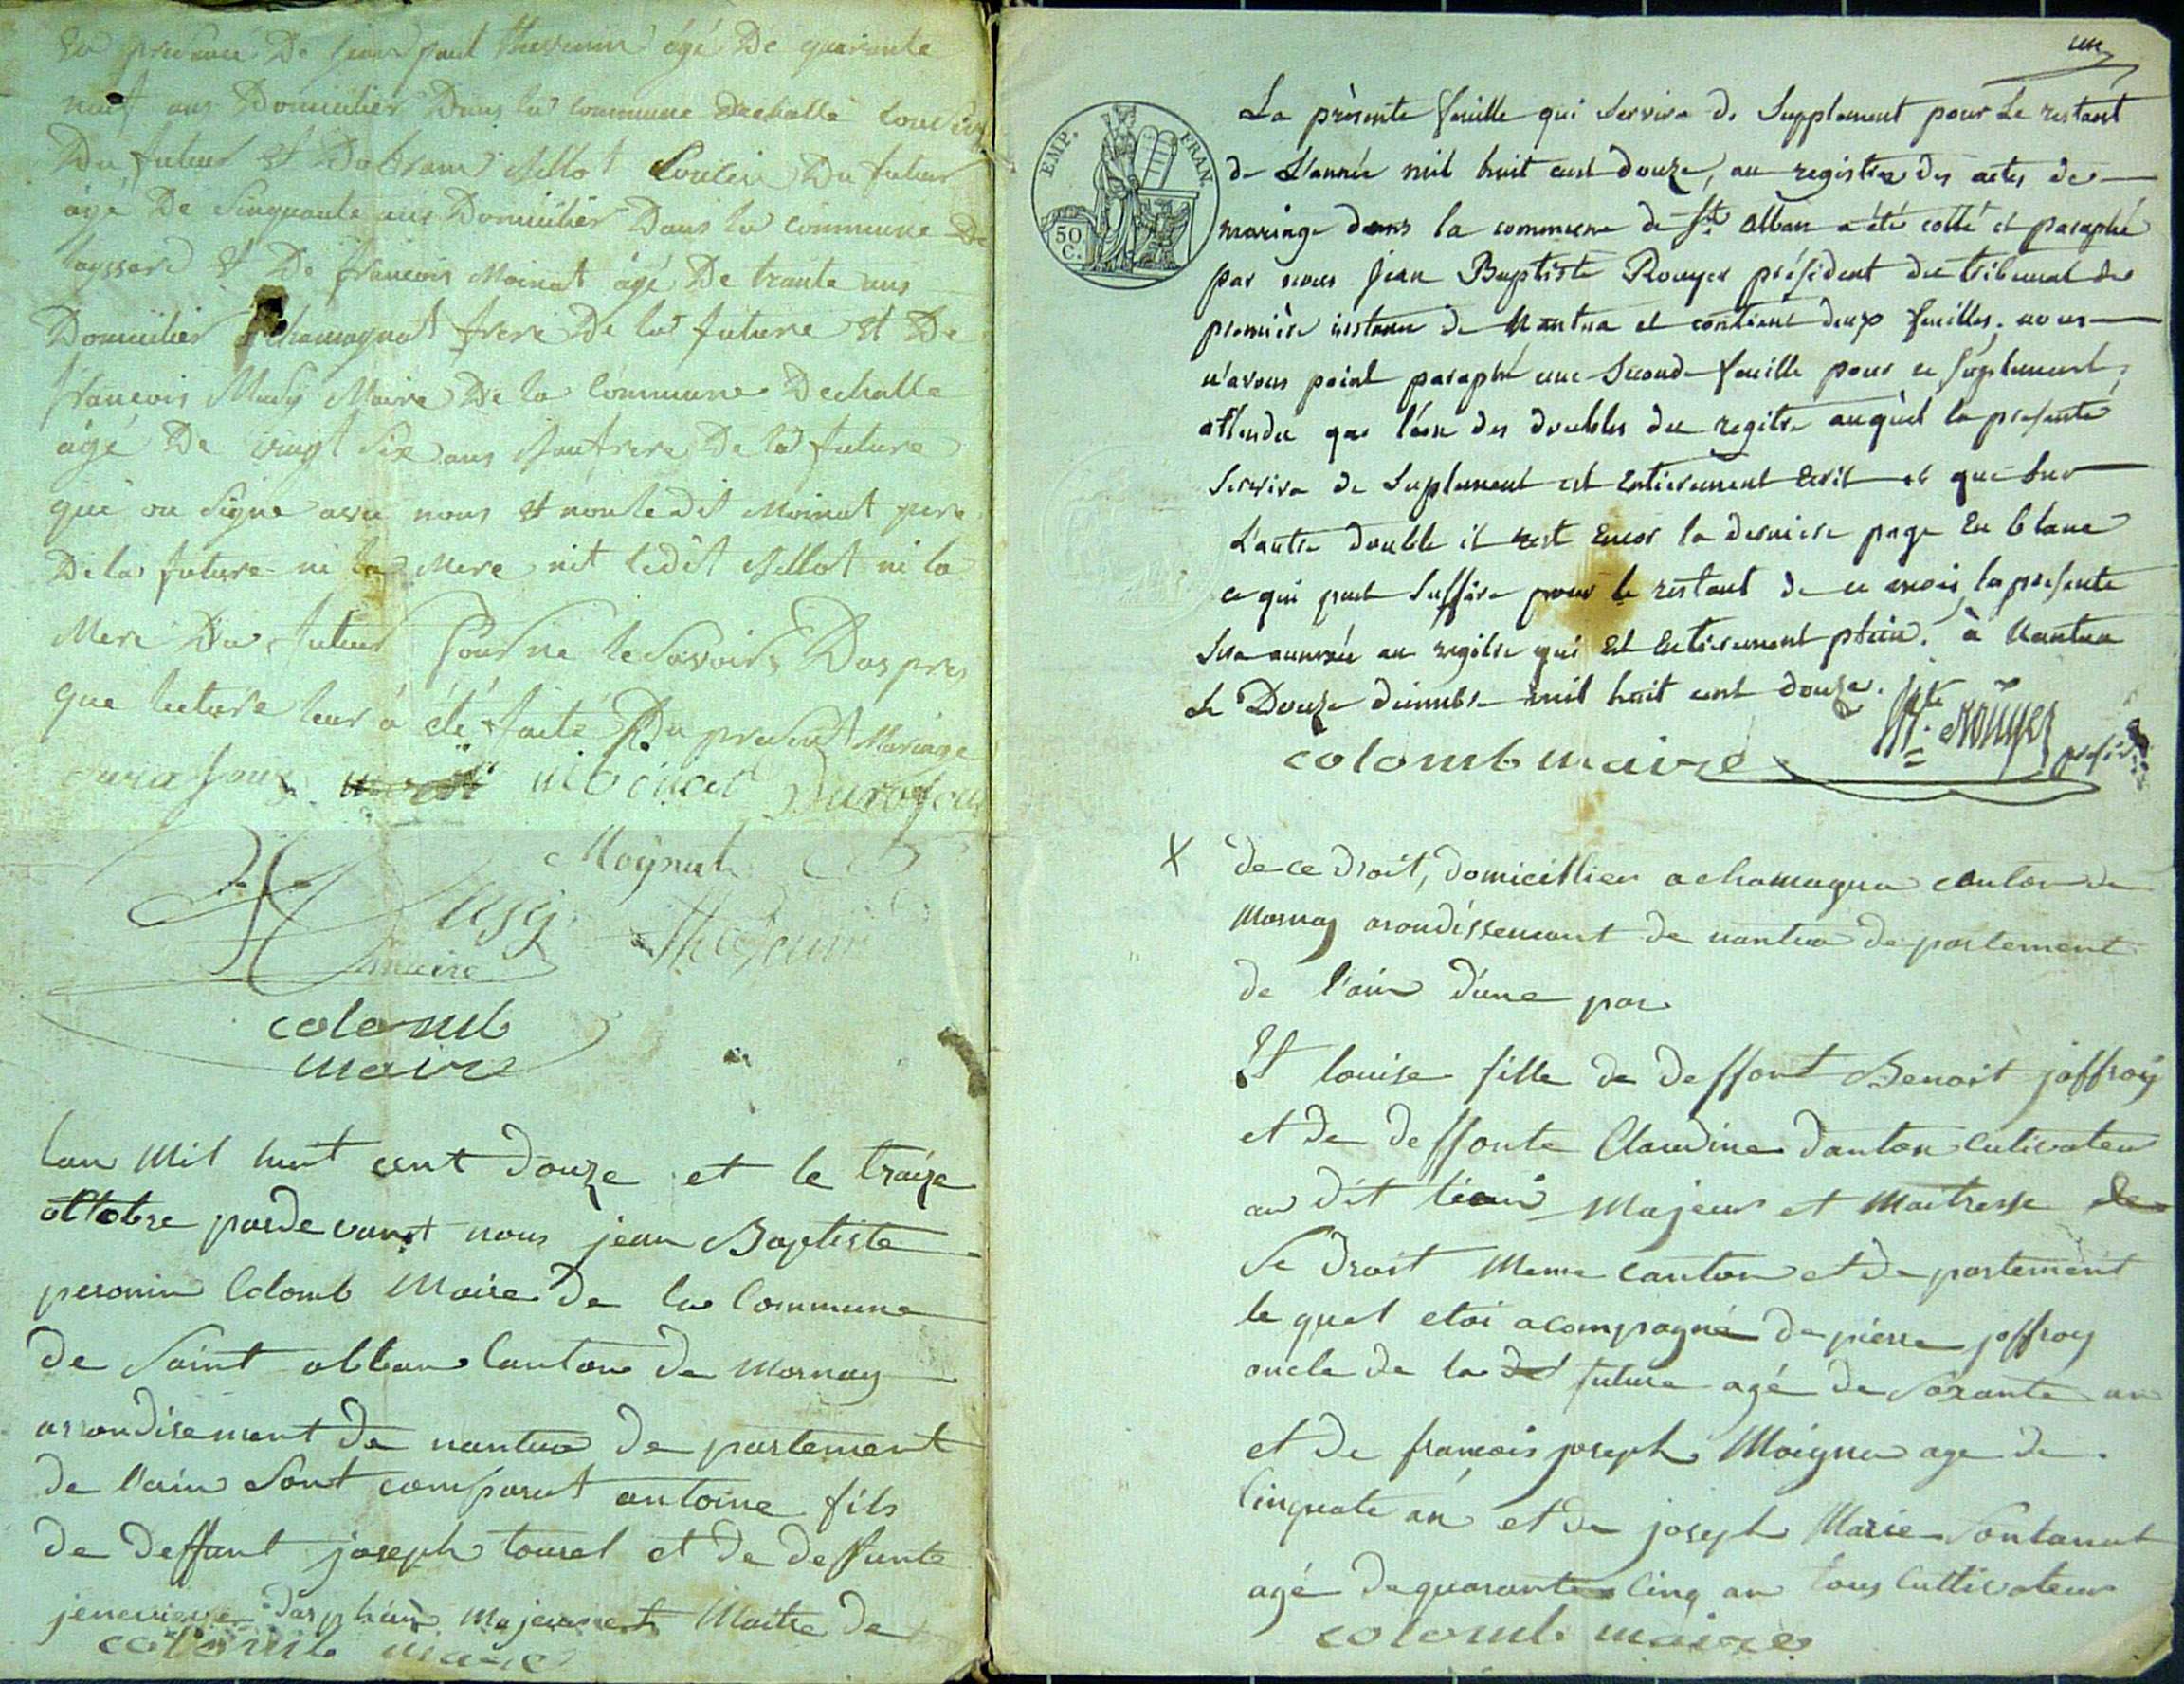 En presence De jean paul thevenin agé De quarante
neuf ans Domicilier Dans la commune Dechalle cousin
Du futur et Dabram Millot Cousin Du futur
agé De Sinquante ans Domicilier Dans la commune De
Leyssard et De francois Moinat agé De trante ans
Domicilier chamagnat frere De la future et De
francois Mudy Maire De la Commune Dechalle
agé De vingt Six ans Baufrere De la future
qui on Signe avec nous et non le dit Moinat pere
De la future ni la Mere nit ledit Millot ni la
Mere Du futur Pour ne le Savoir Daspres
que lecture leur à été faite Du present Mariage
Moynat
maire
colomb
maire
lan Mil huit cent douze et le traize
octobre pardevant nous jean Baptiste
peronin Colomb Maire De la Commune
de Saint alban Canton de Mornay
arrondisement de nantua departement
de l'ain Sont comparut antoine fils
de deffunt joseph tournel et de deffunte
jenevieve dasphin majeur et Maitre de
colomb maire
un
EMP. FRAN.
50 C.
La présente feuille qui servira de Supplement pour Le restant
de L'année mil huit cent douze, au registre des actes de
mariage dans la commune de St. alban a été cotté et paraphé
par nous Jean Baptiste Rouyer président du tribunal de
première instance de Nantua et contient deux feuilles. nous
n'avons point paraphé une Seconde feuille pour ce suplement,
attendu que l'un des doubles du registre auquel la presente
Servira de Suplement est Entierement Ecrit et que sur
L'autre double il rest Encor la derniere page En blanc
ce qui peut Suffire pour le restant de ce mois, la presente
Sera annexée au registre qui Est Entierement plein. à Nantua
Le Douze décembre mil huit cent douze.
Bte. Rouyer presid.
colomb maire
X de ce droit, domicillier a chamagna canton de
Mornay arondissement de nantua departement
de l'ain d'une par
Et louise fille de deffont Benoit joffroy
et de deffonte Claudine danton cultivateur
au dit lieu Majeur et Maitresse de
Se droit Meme canton et departement
le quel etoi acompagné de pierre joffroy
oncle de la future agé de Soxante an
et de francois joseph Moigna age de
Cinquate an et de joseph Marie Fontanat
agé de quarante cinq an tous Cultivateur
colomb maire